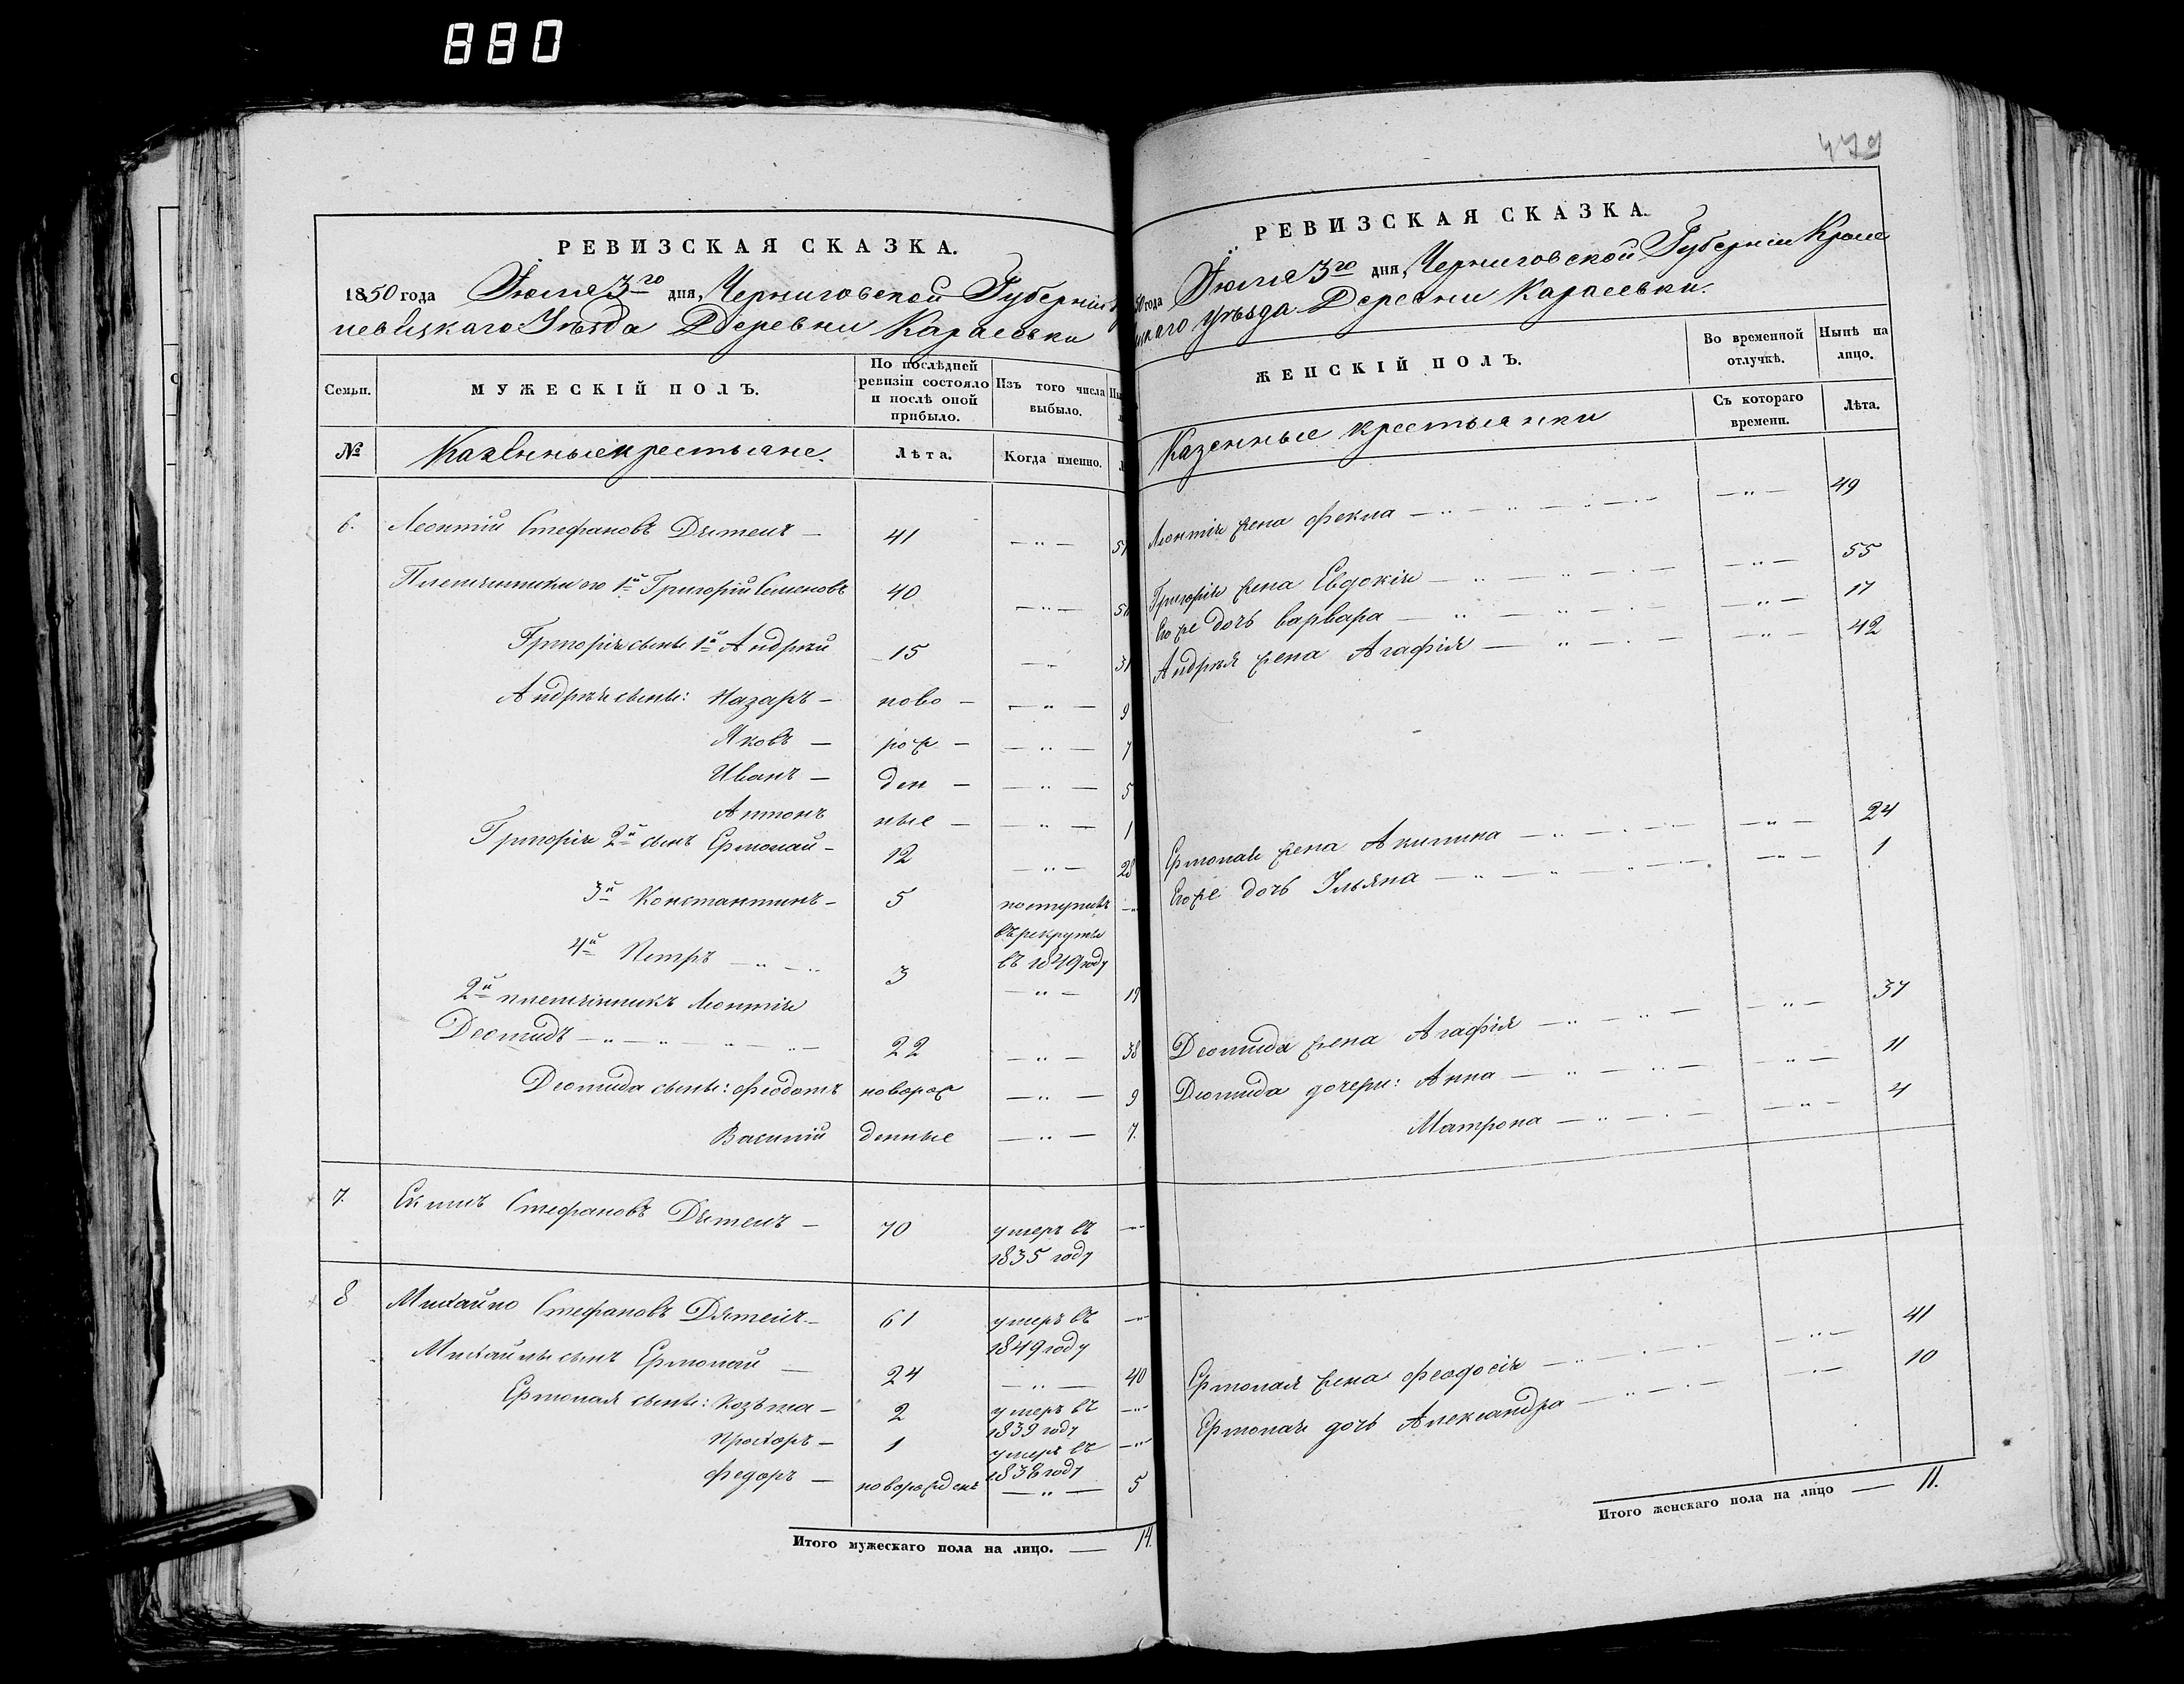 880
РЕВИЗСКАЯ СКАЗКА.
1850 года Іюля 3го дня, Черниговской Губерніи
невецкаго Уѣзда Деревни Караевки
Семьи. МУЖЕСКІЙ ПОЛЪ. По послѣдней ревизіи состояло и послѣ оной прибыло. Изъ того числа выбыло.
№ Казенные крестьяне. Лѣта. Когда именно.
6. Леонтій Стефановъ Дятелъ — 41 — „ — 51
Племянники его 1й Григорій Семеновъ 40 — „ —
Григорія сынъ 1й Андрей 15 — „ — 31
Андрѣя сыны: Назаръ — ново — — „ — 9
Яковъ — рож — — „ — 7
Иванъ — ден — — „ — 5
Антонъ ные — — „ — 1
Григорія 2й сынъ Ермолай — 12 — „ — 28
3й Константинъ — 5 поступилъ — „
въ рекруты
въ 1849 году
4й Петръ — „ — „ 3 — „ — 19
2й племянникъ Леонтія
Деомидъ — „ — „ — „ — „ — 22 — „ — 38
Деомида сыны: Феодотъ новорож — „ — 9
Василій денные — „ — 7.
7. Стефановъ Дятелъ — 70 умеръ въ — „
1835 году
8 Михайло Стефановъ Дятелъ — 61 умеръ въ — „
1849 году
Михайлы сынъ Ермолай — 24 — „ — 40
Ермолая сыны: Козьма — 2 умеръ въ — „
1839 году
Прохоръ — 1 умеръ въ — „
1838 году
Федоръ — новорожденъ — „ — 5
Итого мужескаго пола на лицо. — 14.
479
РЕВИЗСКАЯ СКАЗКА.
50 года Іюля 3го дня, Черниговской Губерніи Кроле
цкаго уѣзда Деревни Караевки.
ЖЕНСКІЙ ПОЛЪ. Во временной отлучкѣ. Нынѣ на лицо.
Казенные крестьянки Съ котораго времени. Лѣта.
Леонтія жена Фекла — „ — „ — „ — — „ — 49
Григорія жена Евдокія — „ — „ — — „ — 55
Его же дочь Варвара — „ — „ — — „ — 17
Андрѣя жена Агафія — „ — — „ — 42
Ермолая жена Акилина — „ — — „ — 24
Его же дочь Ульяна — „ — „ — — „ — 1
Деомида жена Агафія — „ — „ — — „ — 37
Деомида дочери: Анна — „ — „ — — „ — 11
Матрона — „ — — „ — 4
Ермолая жена Феодосія — „ — — „ — 41
Ермолая дочь Александра — „ — — „ — 10
Итого женскаго пола на лицо — 11.